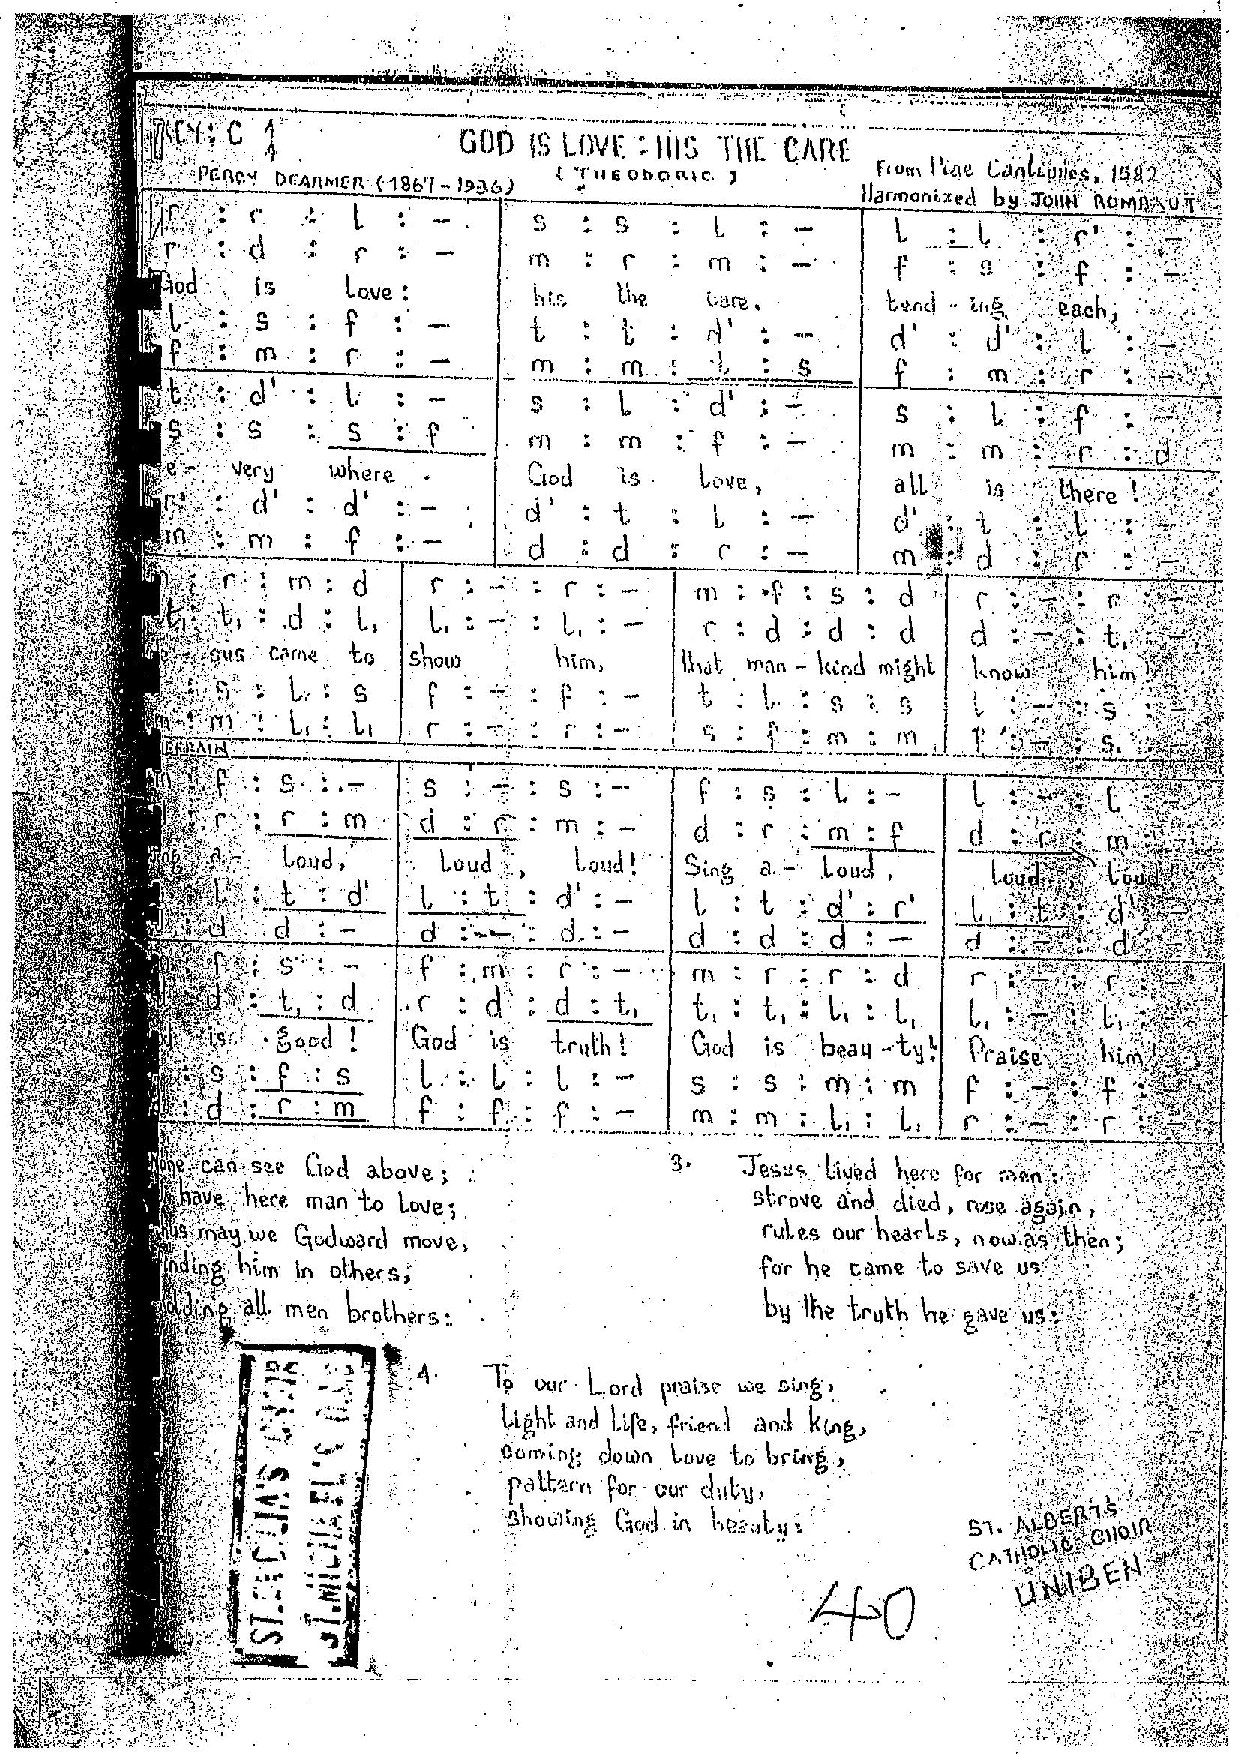 KEY: C
GOD IS LOVE : HIS THE CARE
PERCY DEARMER (1867-1936)
(THEODORIC)
From Piae Cantiones, 1582
Harmonized by JOHN ROMBAUT
r : r : l : - | s : s : l : - | l : l : r' : -
r : d : r : - | m : r : m : - | f : s : f : -
God is love: his the care, tend - ing each,
l : s : f : - | t : t : d' : - | d' : d' : l : -
f : m : r : - | m : m : l : s | f : m : r : -
t : d' : l : - | s : l : d' : - | s : l : f : -
s : s : s : f | m : m : f : - | m : m : r : d
e - very where. God is love, all is there!
r' : d' : d' : - | d' : t : l : - | d' : t : l : -
m : m : f : - | d : d : r : - | m : d : r : -
: r : m : d | r : - : r : - | m : f : s : d | r : - : r : -
t, : t, : d : l, | l, : - : l, : - | r : d : d : d | d : - : t, :
- sus came to show him, that man - kind might know him!
: s : l : s | f : - : f : - | t : l : s : s | l : - : s :
m : m : l, : l, | r : - : r : - | s : f : m : m | f : - : s,
REFRAIN
f : s : - | s : - : s : - | f : s : l : - | l : - : l : -
r : r : m | d : r : m : - | d : r : m : f | d : r : m :
a - loud, loud, loud! Sing a - loud, loud, loud
l : t : d' | l : t : d' : - | l : t : d' : r' | l : t : d'
d d : - | d : - : d : - | d : d : d : - | d : - : d
f : s : - | f : m : r : - | m : r : r : d | r : - : r :
d : t, : d | r : d : d : t, | t, : t, : l, : l, | l, : - : l, :
is good! God is truth! God is beau - ty! Praise him!
: s : f : s | l : l : l : - | s : s : m : m | f : - : f :
: d : r : m | f : f : f : - | m : m : l, : l, | r : - : r :
can see God above;
have here man to love;
may we Godward move,
him in others,
all men brothers:
3. Jesus lived here for men:
strove and died, rose again,
rules our hearts, now as then;
for he came to save us
by the truth he gave us:
4. To our Lord praise we sing,
light and life, friend and king,
coming down love to bring,
pattern for our duty,
showing God in beauty:
ST. CECILIA'S CHOIR
ST. MICHAEL'S
ST. ALBERT'S
CATHOLIC CHOIR
UNIBEN
40